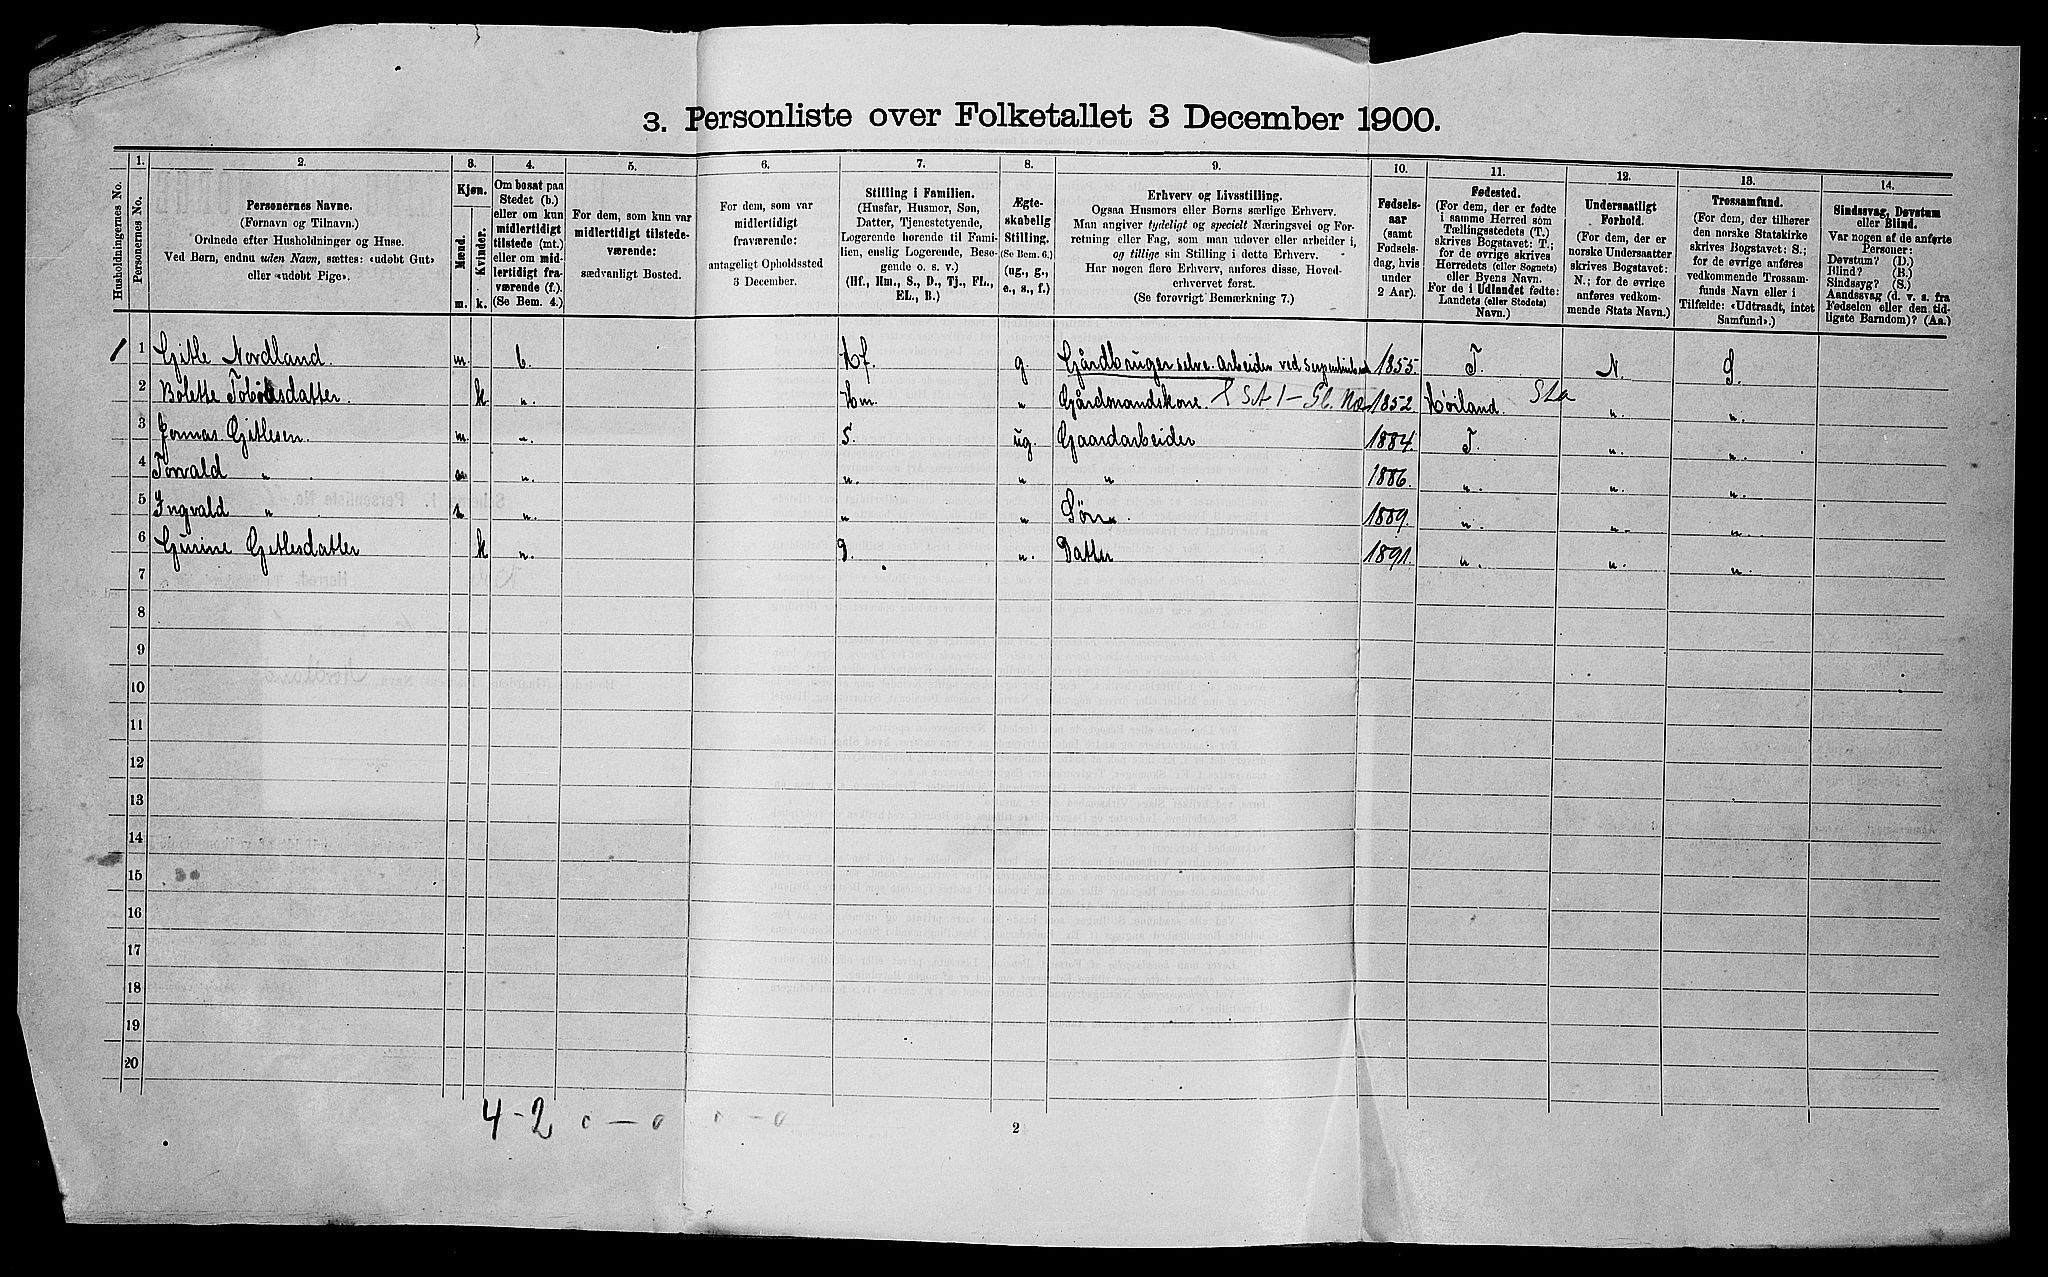 3. Personliste over Folketallet 3 December 1900.
Husholdningernes No.
1.
Personernes No.
2.
Personernes Navne.
(Fornavn og Tilnavn.)
Ordnede efter Husholdninger og Huse.
Ved Børn, endnu uden Navn, sættes: «udøbt Gut»
eller «udøbt Pige».
3.
Kjøn.
Mænd.
Kvinder.
m.
k.
4.
Om bosat paa
Stedet (b.)
eller om kun
midlertidigt
tilstede (mt.)
eller om mid-
lertidigt fra-
værende (f.).
(Se Bem. 4.)
5.
For dem, som kun var
midlertidigt tilstede-
værende:
sædvanligt Bosted.
6.
For dem, som var
midlertidigt
fraværende:
antageligt Opholdssted
3 December.
7.
Stilling i Familien.
(Husfar, Husmor, Søn,
Datter, Tjenestetyende,
Logerende hørende til Fami-
lien, enslig Logerende, Besø-
gende o. s. v.)
(Hf., Hm., S., D., Tj., FL.,
EL., B.)
8.
Ægte-
skabelig
Stilling.
(Se Bem. 6.)
(ug., g.,
e., s., f.)
9.
Erhverv og Livsstilling.
Ogsaa Husmors eller Børns særlige Erhverv.
Man angiver tydeligt og specielt Næringsvei og For-
retning eller Fag, som man udøver eller arbeider i,
og tillige sin Stilling i dette Erhverv.
Har nogen flere Erhverv, anføres disse, Hoved-
erhvervet først.
(Se forøvrigt Bemærkning 7.)
10.
Fødsels-
aar
(samt
Fødsels-
dag, hvis
under
2 Aar).
11.
Fødested.
(For dem, der er fødte
i samme Herred som
Tællingsstedets (T.)
skrives Bogstavet: T.;
for de øvrige skrives
Herredets (eller Sognets)
eller Byens Navn.
For de i Udlandet fødte:
Landets (eller Stedets)
Navn.)
12.
Undersaatligt
Forhold.
(For dem, der er
norske Undersaatter
skrives Bogstavet:
N.; for de øvrige
anføres vedkom-
mende Stats Navn.)
13.
Trossamfund.
(For dem, der tilhører
den norske Statskirke
skrives Bogstavet: S.;
for de øvrige anføres
vedkommende Trossam-
funds Navn eller i
Tilfælde: «Udtraadt, intet
Samfund».)
14.
Sindssvag, Døvstum
eller Blind.
Var nogen af de anførte
Personer:
Døvstum? (D.)
Blind? (B.)
Sindssyg? (S.)
Aandssvag (d. v. s. fra
Fødselen eller den tid-
ligste Barndom)? (Aa.)
1 1 Gitle Nordland. m. b. Hf. g Gårdbruger selve. Arbeider ved 1855. T. N. S.
2 Bolette k „. Hm. „ Gårdmandskone. 1852. Høiland Sta „. „.
3 Jonnas Gitlesen. m. „. S. ug. Gaardarbeider 1884. T. „. „.
4 Torvald „ m „. „. „ „ 1886. „. „. „.
5 Ingvald „ „. „ „ Søn. 1889. „. „. „.
6 Gurine Gitlesdatter k „. D. „. Datter 1891. „. „. „.
7
8
9
10
11
12
13
14
15
16
17
18
19
20
4 - 2 0 - 0 0 - 0
2